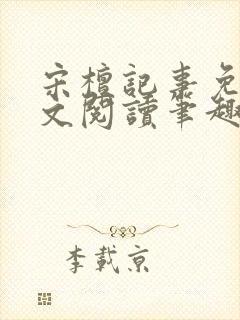 宋檀記事免
文閱讀筆趣
李載京